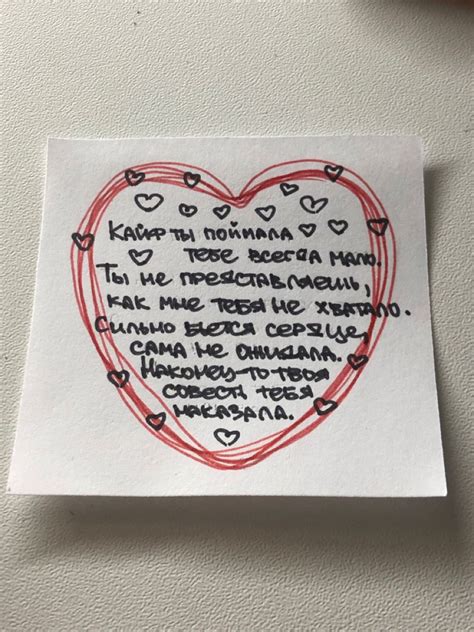 Кайф ты поймала
тебе всегда мало.
Ты не представляешь,
как мне тебя не хватало.
Сильно бьется сердце,
сама не ожидала.
Наконец-то твоя
совесть тебя
наказала.